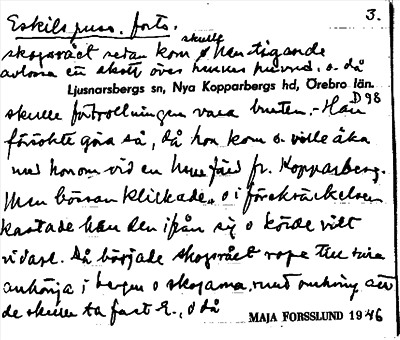 Eskils puss. forts. 3.
skogsrået sedan kom skulle han tigande
avlossa ett skott över hennes huvud, o. då
Ljusnarsbergs sn, Nya Kopparbergs hd, Örebro län.
D 98
skulle förtrollningen vara bruten. - Han
försökte göra så, då hon kom o. ville åka
med honom vid en hemfärd fr. Kopparberg.
Men bössan klickade, o i förskräckelsen
kastade han den ifrån sig o körde vilt
vidare. Då började skogsrået ropa till sina
anhöriga i bergen o skogarna runt omkring att
de skulle ta fast E., o då
MAJA FORSSLUND 1946